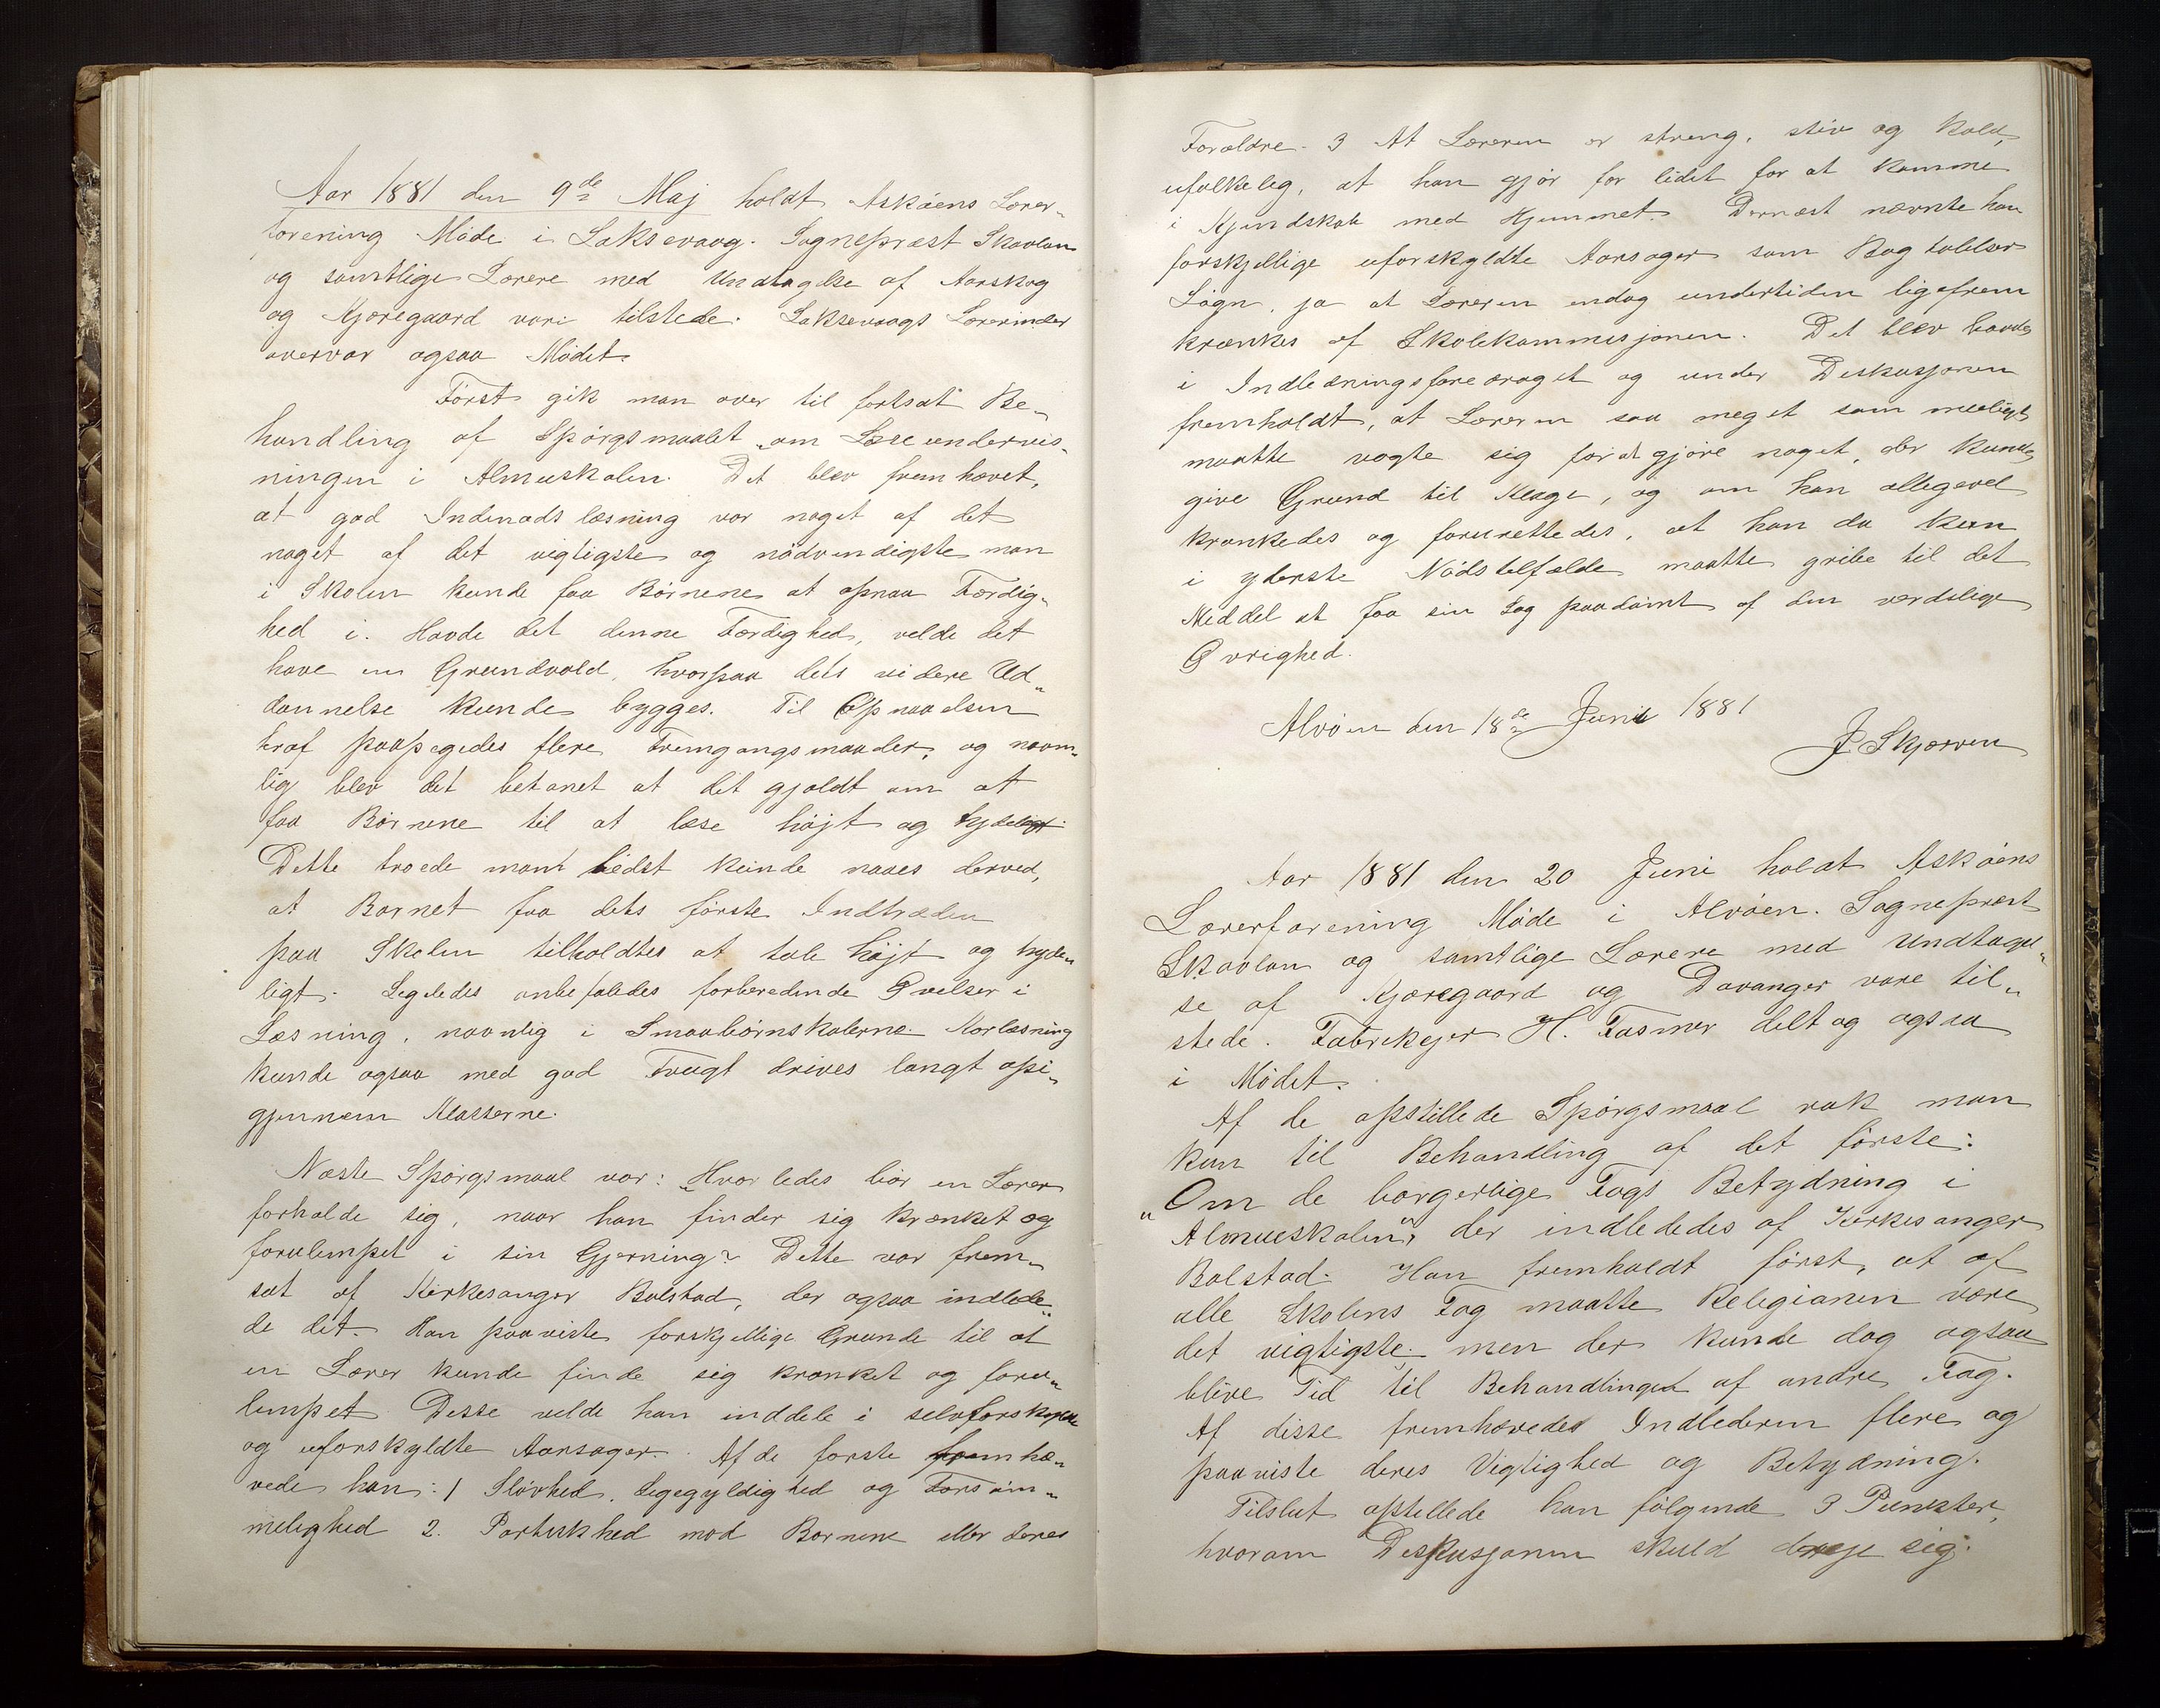 Aar 1881 den 9de Maj holdt Askøens Lærer„
forening Møde i Laksevaag. Sognepræst Skavlan
og samtlige Lærere med Undtagelse af Aarskog
og Kjæregaard vare tilstede. Laksevaags Lærerinder
overvar ogsaa Mødet.
Først gik man over til fortsat Be„
handling af Spørgsmaalet „om Læseundervis„
ningen i Almuskolen. Det blev fremhævet,
at god Indenadslæsning var noget af det
noget af det vigtigste og nødvendigste man
i Skolen kunde faa Børnene at opnaa Færdig„
hed i. Havde det denne Færdighed, vilde det
have en Grundvold, hvorpaa dets videre Ud„
dannelse kunde bygges. Til Opnaaelsen
heraf paapegedes flere Fremgangsmaader, og navn„
lig blev det betonet at det gjaldt om at
faa Børnene til at læse højt og tydeligt.
Dette troede man bedst kunde naaes derved,
at Barnet fra dets første Indtræden
paa Skolen tilholdtes at tale højt og tyde„
ligt. Ligeledes anbefaledes forberedende Øvelser i
Læsning, navnlig i Smaabørnskolerne. Korlæsning
kunde ogsaa med god Frugt drives langt opi„
gjennem Klasserne.
Næste Spørgsmaal var: „Hvorledes bør en Lærer
forholde sig, naar han finder sig krænket og
forulempet i sin Gjerning? Dette var frem„
sat af Kirkesanger Bolstad, der ogsaa indlede„
de det. Han paaviste forskjellige Grunde til at
en Lærer kunde finde sig krænket og foru„
lempet. Disse vilde han inddele i selvforskyldte
og uforskyldte Aarsager. Af de første fremhæ„
vede han: 1 Sløvhed, Ligegyldighed og Forsøm„
melighed 2. Partiskhed mod Børnene eller deres
Forældre. 3 At Læreren er streng, stiv og kold,
ufolkelig, at han gjør for lidet for at komme
i Kjendskab med Hjemmet. Dernæst nævnte han
forskjellige uforskyldte Aarsager som Bagtalelser
Løgn, ja at Læreren endog undertiden ligefrem
krænkes af Skolekommisjonen. Det blev baade
i Indledningsforedraget og under Diskusjonen
fremholdt, at Læreren saa meget som muligt
maatte vogte sig for at gjøre noget, der kunde
give Grund til Klage, og om han alligevel
krænkedes og forurettedes, at han da kun
i yderste Nødstilfælde maatte gribe til det
Middel at faa sin Sag paadømt af den verdslige
Øvrighed.
Alvøen den 18de Juni 1881
J. Skjerven
Aar 1881 den 20 Juni holdt Askøens
Lærerforening Møde i Alvøen. Sognepræst
Skavlan og samtlige Lærere med Undtagel„
se af Kjæregaard og Davanger vare til„
stede. Fabrikejer H. Fasmer deltog ogsaa
i Mødet.
Af de opstillede Spørgsmaal rak man
kun til Behandling af det første:
„Om de borgerlige Fags Betydning i
Almueskolen", der indlededes af Kirkesanger
Bolstad. Han fremholdt først, at af
alle Skolens Fag maatte Religionen være
det vigtigste. men der kunde dog ogsaa
blive Tid til Behandlingen af andre Fag.
Af disse fremhævedes Indlederen flere og
paaviste deres Vigtighed og Betydning.
Tilslut opstillede han følgende 3 Punkter,
hvorom Diskusjonen skuld dreje sig.